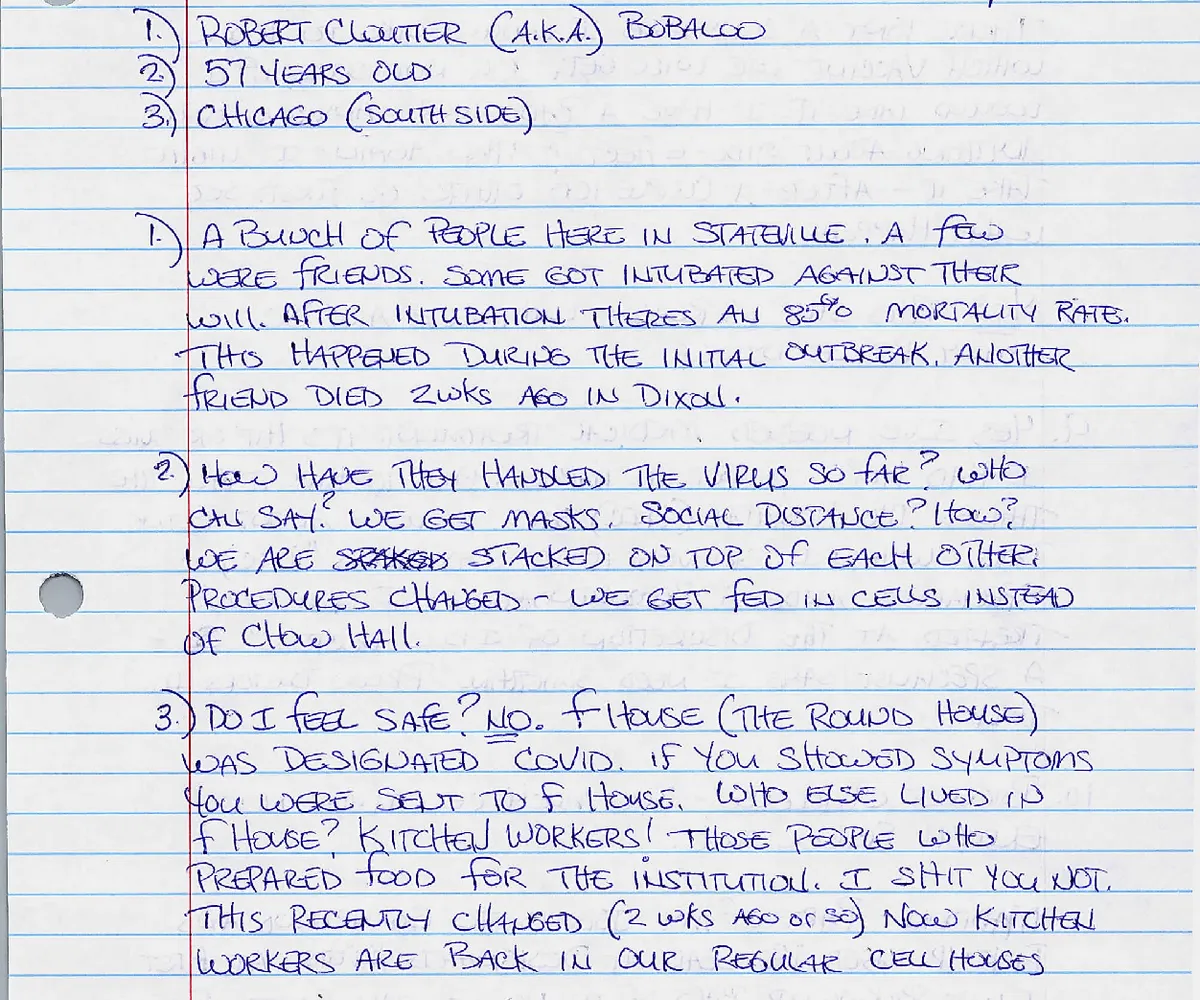 1.) ROBERT CLOUTIER (A.K.A.) BOBALOO
2.) 57 YEARS OLD
3.) CHICAGO (SOUTH SIDE)
1.) A BUNCH OF PEOPLE HERE IN STATEVILLE. A FEW
WERE FRIENDS. SOME GOT INTUBATED AGAINST THEIR
WILL. AFTER INTUBATION THERES AN 85% MORTALITY RATE.
THIS HAPPENED DURING THE INITIAL OUTBREAK. ANOTHER
FRIEND DIED 2WKS AGO IN DIXON.
2.) HOW HAVE THEY HANDLED THE VIRUS SO FAR? WHO
CAN SAY? WE GET MASKS. SOCIAL DISTANCE? HOW?
WE ARE STACKED ON TOP OF EACH OTHER.
PROCEDURES CHANGED - WE GET FED IN CELLS INSTEAD
OF CHOW HALL.
3.) DO I FEEL SAFE? NO. F HOUSE (THE ROUND HOUSE)
WAS DESIGNATED COVID. IF YOU SHOWED SYMPTOMS
YOU WERE SENT TO F HOUSE. WHO ELSE LIVED IN
F HOUSE? KITCHEN WORKERS! THOSE PEOPLE WHO
PREPARED FOOD FOR THE INSTITUTION. I SHIT YOU NOT.
THIS RECENTLY CHANGED (2 WKS AGO OR SO) NOW KITCHEN
WORKERS ARE BACK IN OUR REGULAR CELLHOUSES